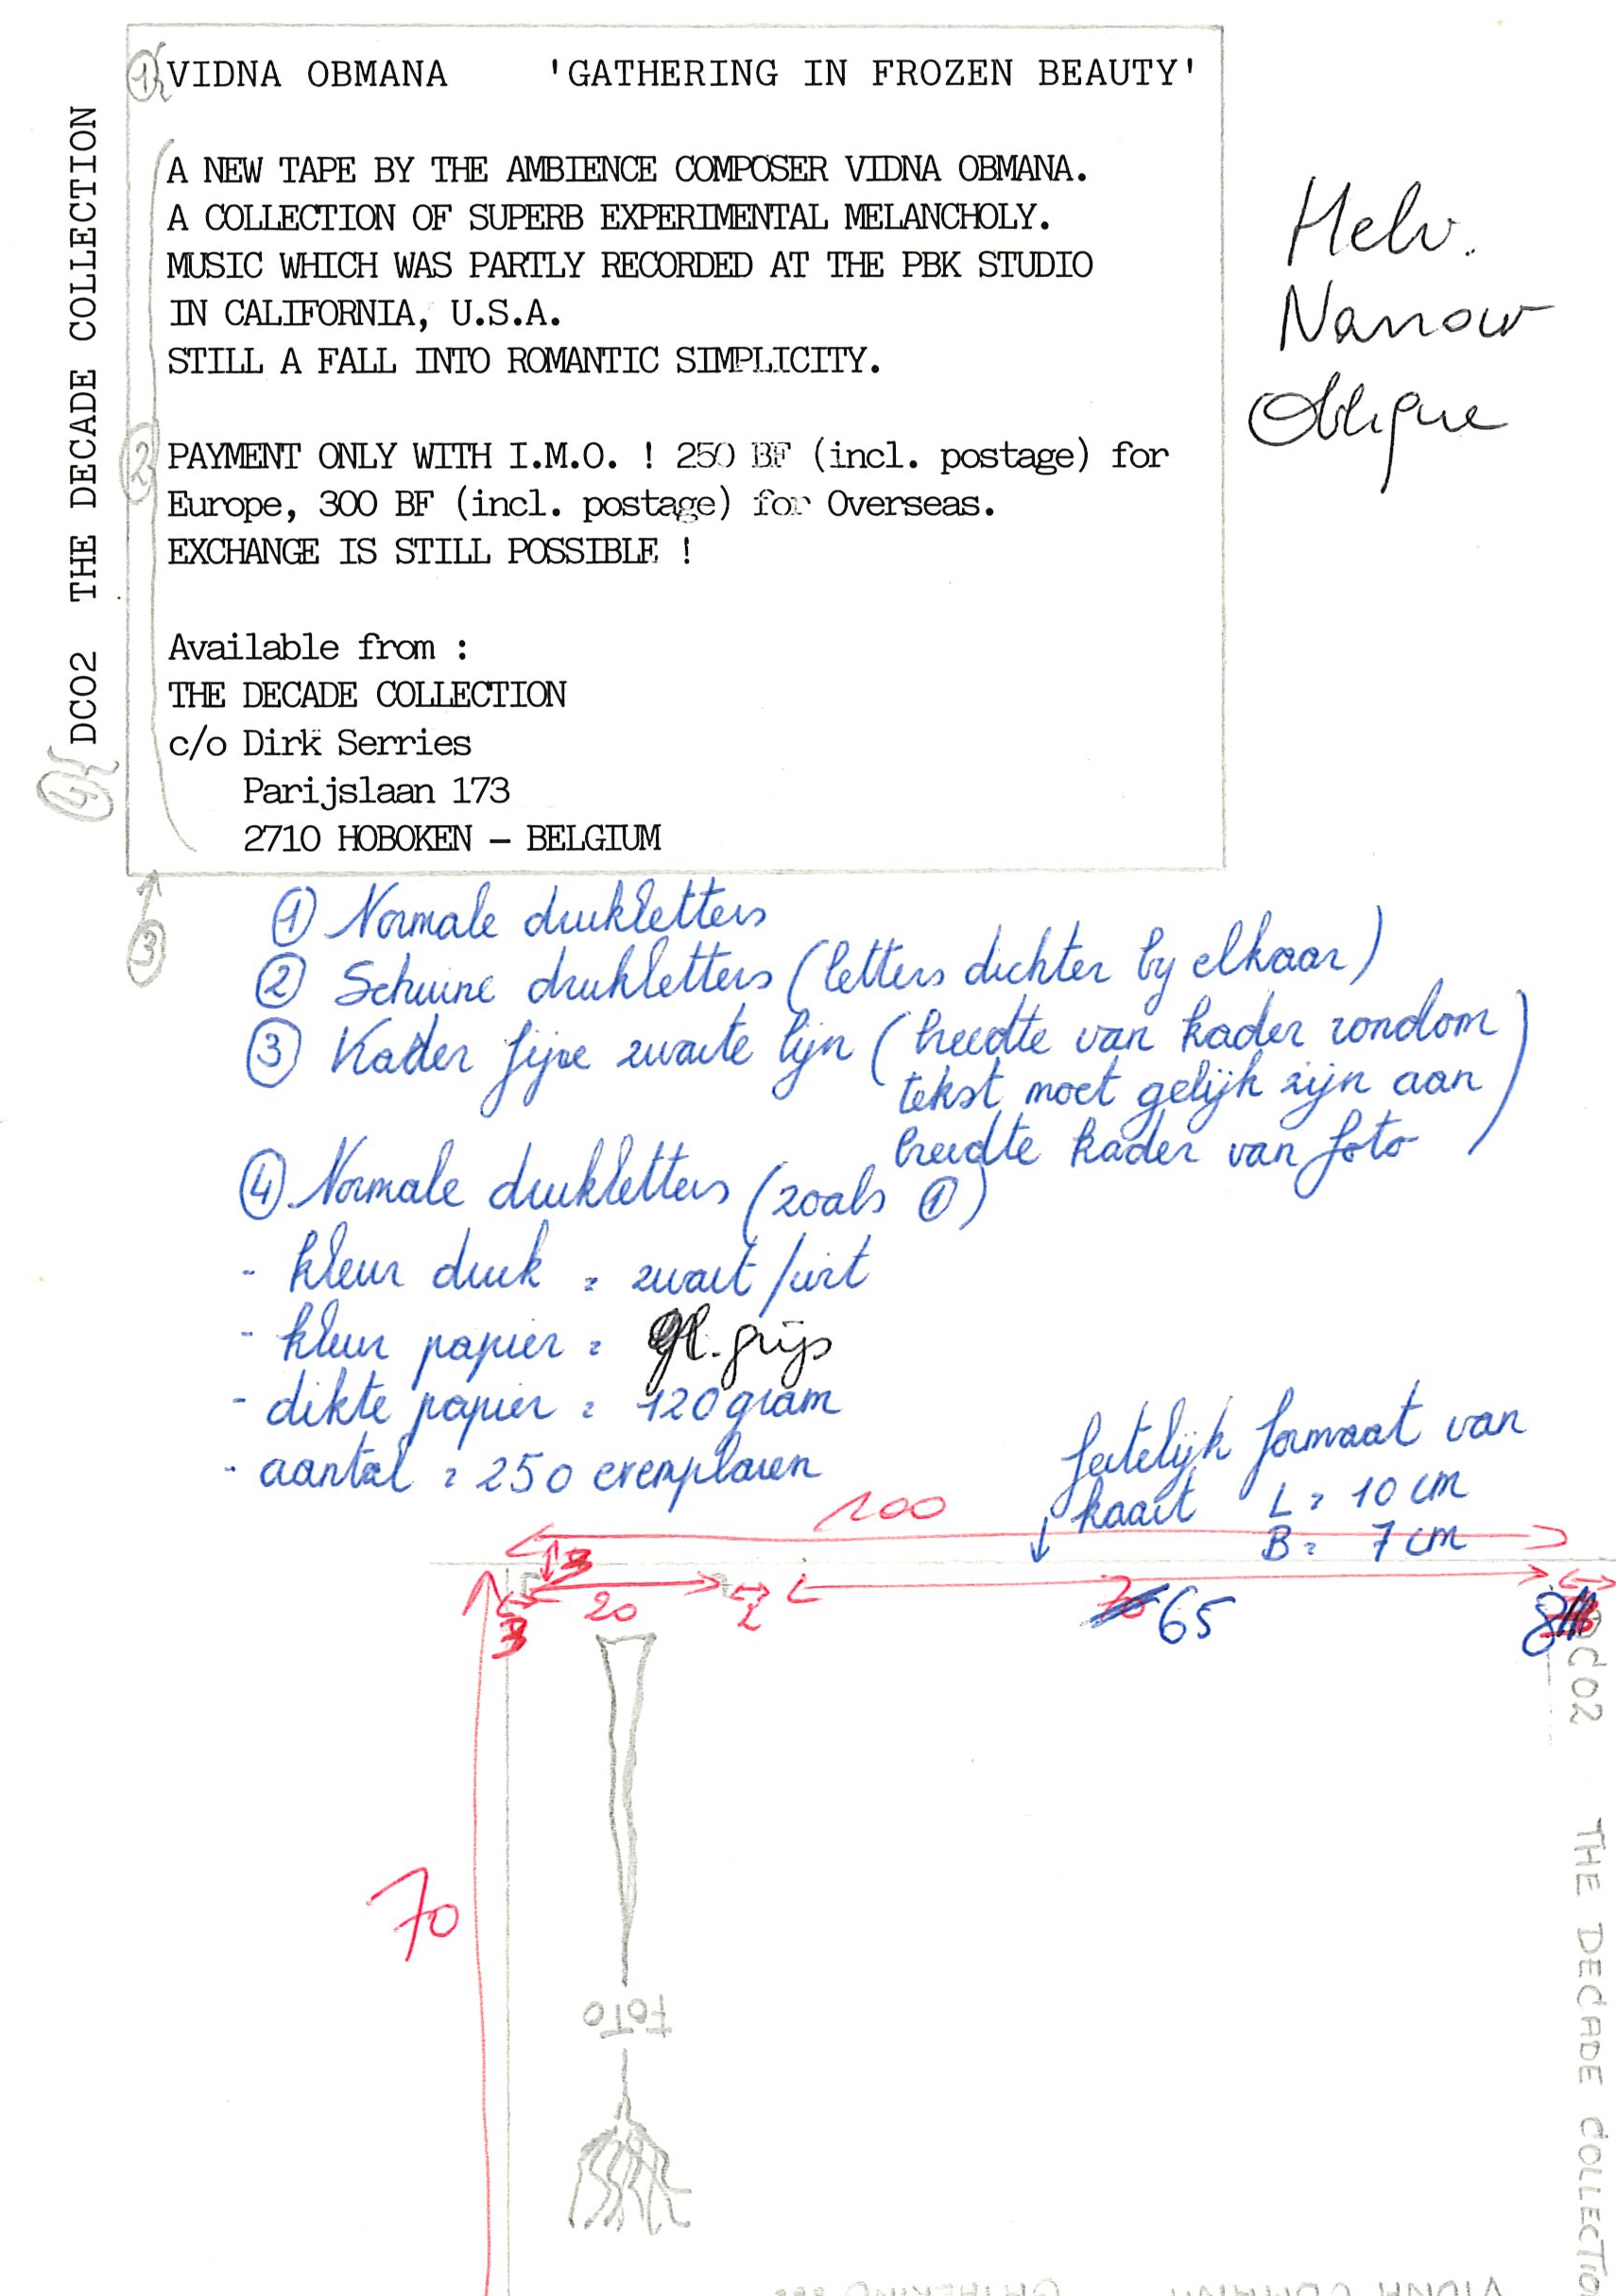 ① VIDNA OBMANA 'GATHERING IN FROZEN BEAUTY'
A NEW TAPE BY THE AMBIENCE COMPOSER VIDNA OBMANA.
A COLLECTION OF SUPERB EXPERIMENTAL MELANCHOLY.
MUSIC WHICH WAS PARTLY RECORDED AT THE PBK STUDIO
IN CALIFORNIA, U.S.A.
STILL A FALL INTO ROMANTIC SIMPLICITY.
② PAYMENT ONLY WITH I.M.O. ! 250 BF (incl. postage) for
Europe, 300 BF (incl. postage) for Overseas.
EXCHANGE IS STILL POSSIBLE !
Available from :
THE DECADE COLLECTION
c/o Dirk Serries
Parijslaan 173
2710 HOBOKEN – BELGIUM
④ DC02 THE DECADE COLLECTION
③
Helv.
Narrow
Oblique
① Normale drukletters
② Schuine drukletters (letters dichter by elkaar)
③ Kader fijne zwarte lijn (breedte van kader rondom
tekst moet gelijk zijn aan
breedte kader van foto)
④ Normale drukletters (zoals ①)
- kleur druk = zwart/wit
- kleur papier = gl. grijs
- dikte papier = 120 gram
- aantal = 250 exemplaren
feitelijk formaat van
kaart L = 10 cm
B = 7 cm
100
3
20
2
65
8
3
70
FOTO
DC02 THE DECADE COLLECTIO
VIDNA OBMANA GATHERING